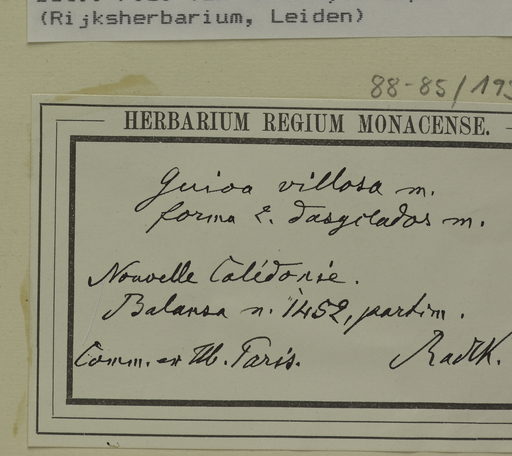 (Rijksherbarium, Leiden)
88-85/193
HERBARIUM REGIUM MONACENSE.
Guioa villosa m.
forma 2. dasyclados m.
Nouvelle Calédonie.
Balansa n. 1452, partim.
Comm. ex Hb. Paris. Radlk.